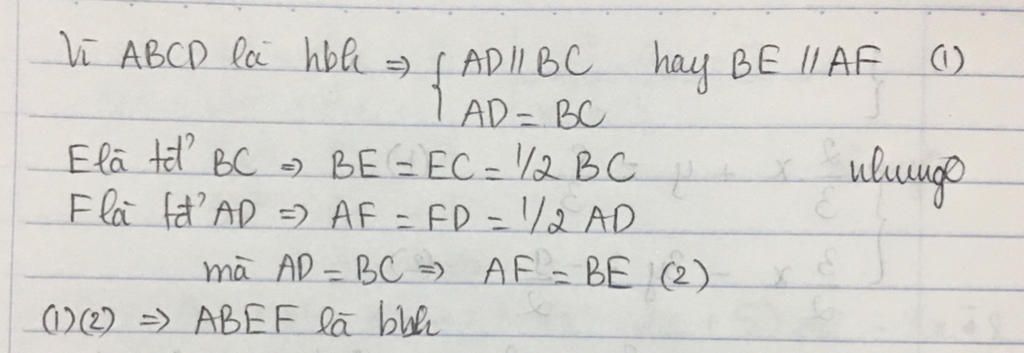 Vì ABCD là hbh ⇒ { AD // BC hay BE // AF (1)
AD = BC
E là tđ' BC ⇒ BE = EC = 1/2 BC
F là tđ' AD ⇒ AF = FD = 1/2 AD
mà AD = BC ⇒ AF = BE (2)
(1)(2) ⇒ ABEF là bhh